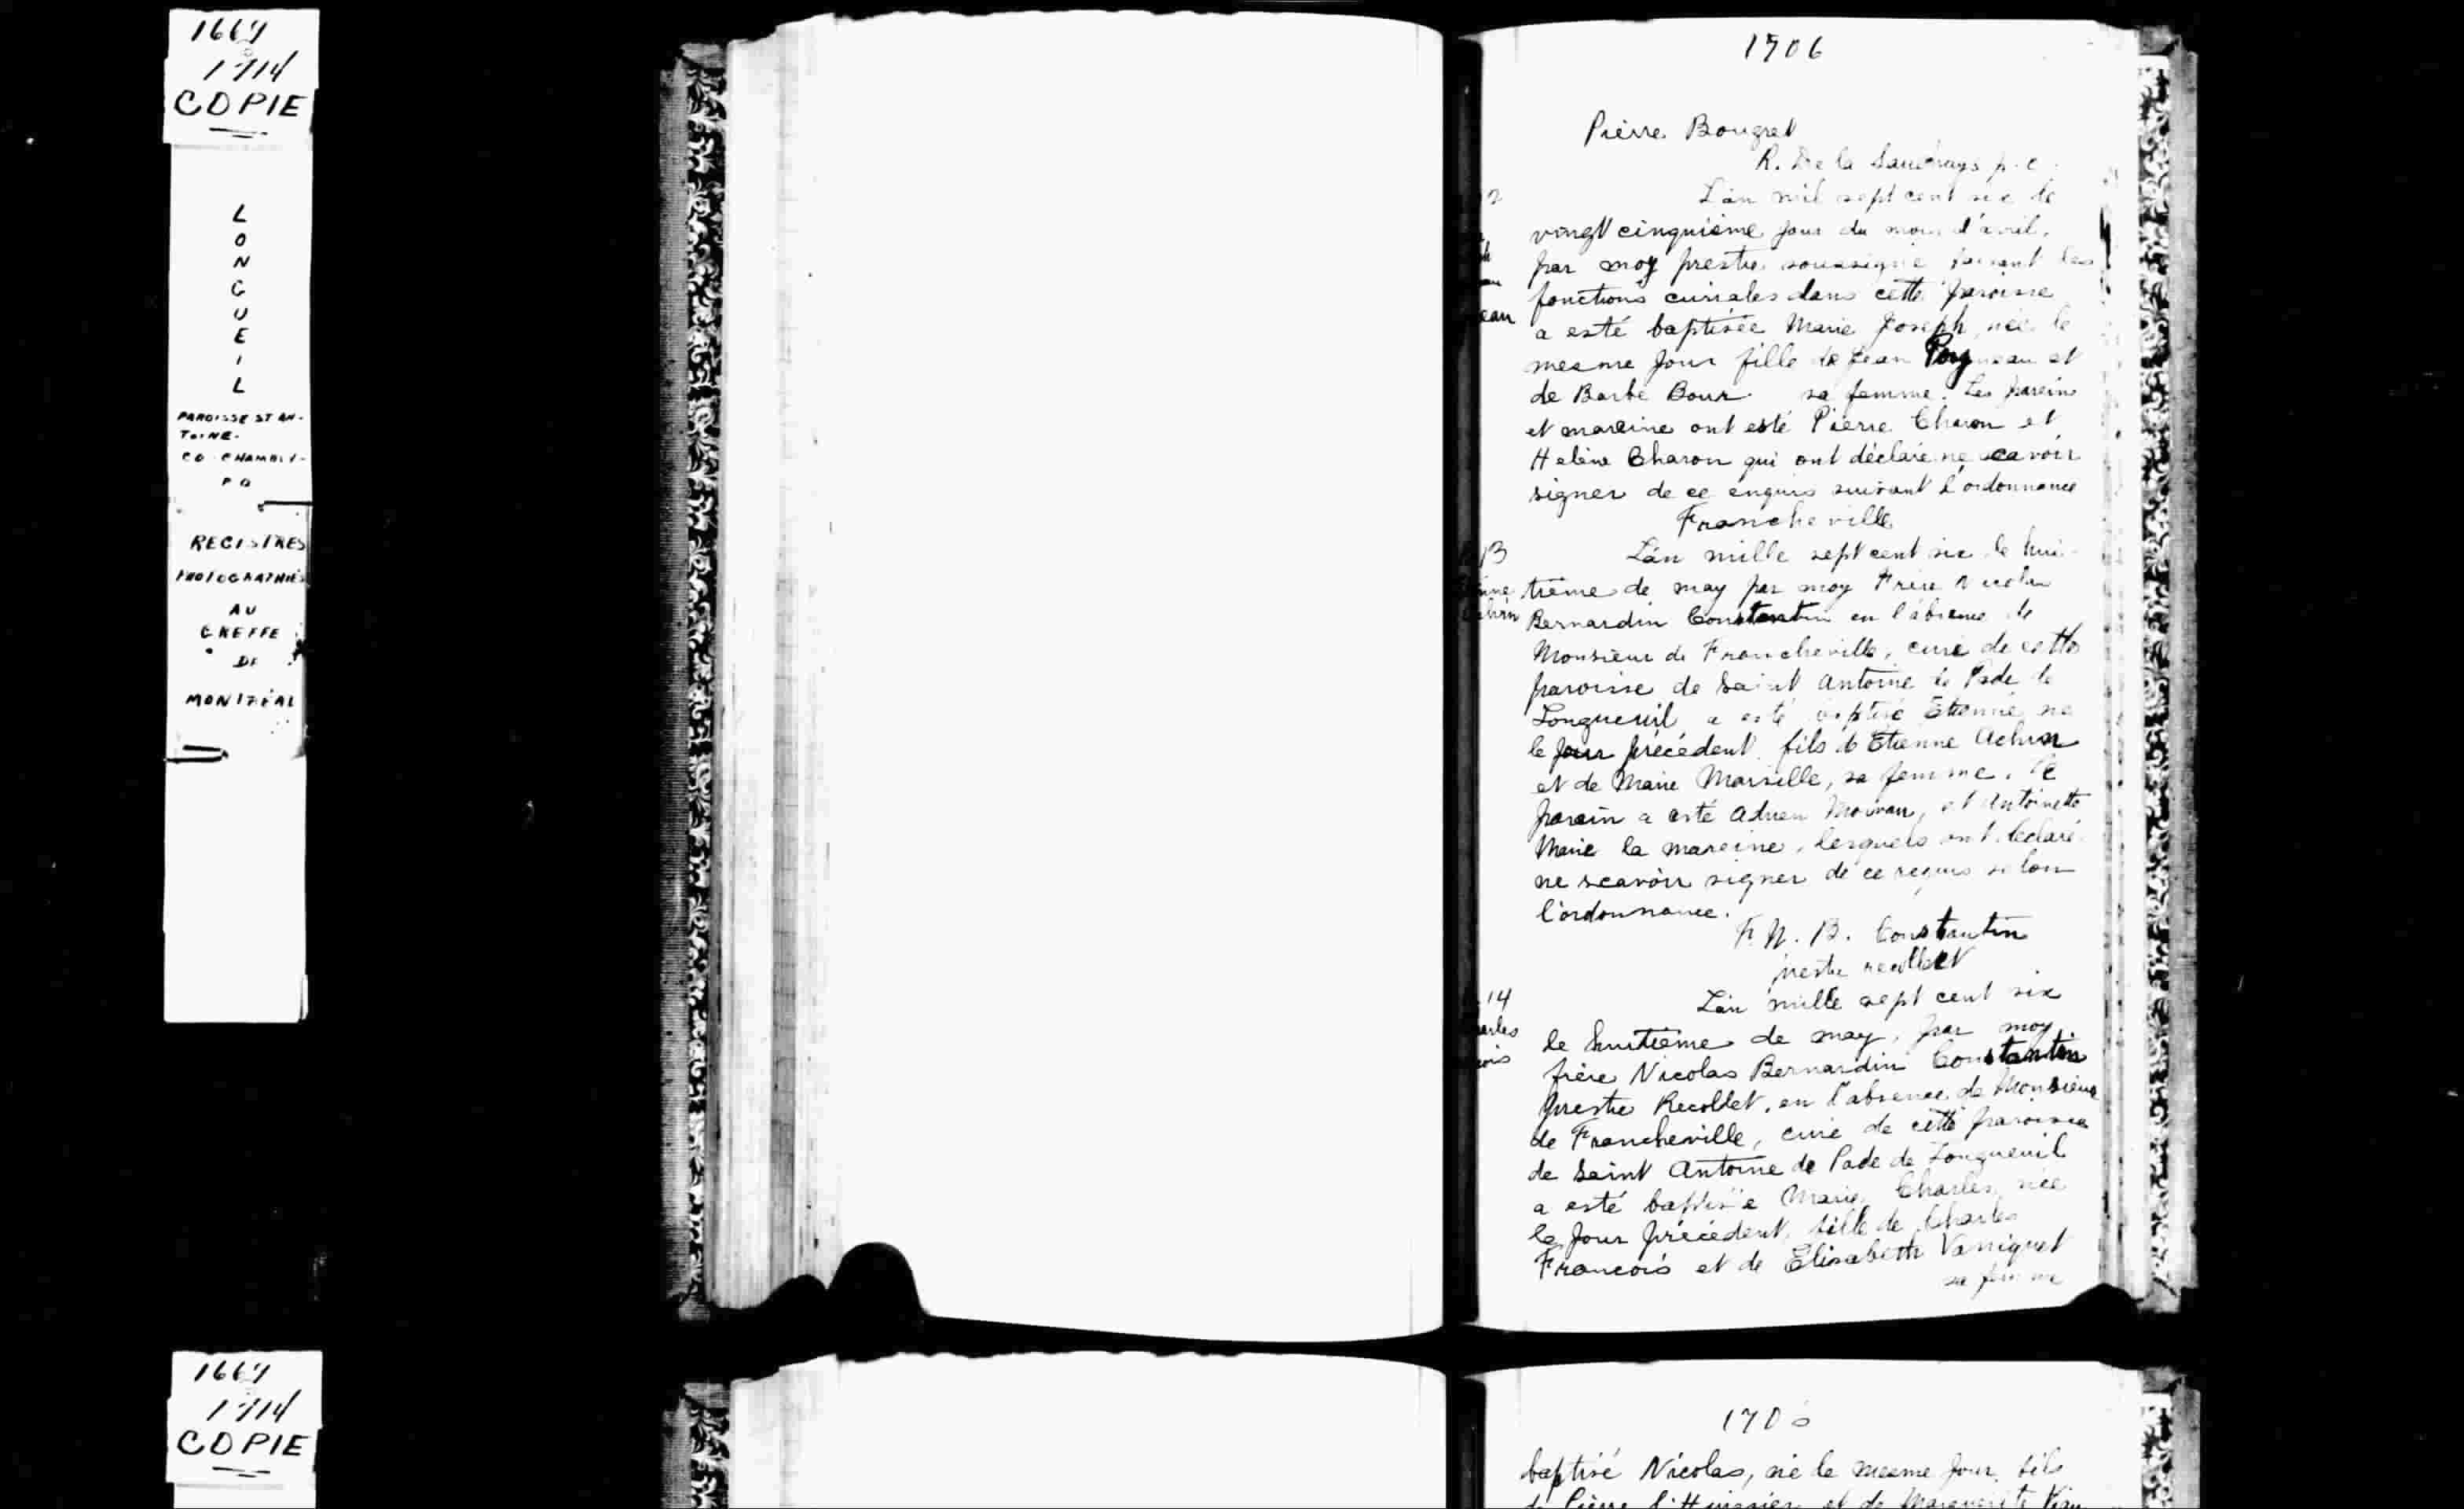 1667
à
1714
COPIE
L
O
N
G
U
E
I
L
PAROISSE ST AN-
TOINE-
CO CHAMBLY-
P Q
REGISTRES
PHOTOGRAPHIES
AU
GREFFE
DE
MONTRÉAL
1706
Pierre Bougret
R. De la p. c.
L'an mil sept cent six le
vingt cinquième jour du mois d'avril,
par moy prestre soussigné faisant les
fonctions curiales dans cette paroisse
eau
a esté baptisée Marie Joseph née le
mesme jour fille de Jean et
de Barbe Bour sa femme. Les parein
et mareine ont esté Pierre Charon et
Helène Charon qui ont déclaré ne scavoir
signer de ce enquis suivant l'ordonnance
Francheville
13
L'an mille sept cent six le hui-
tième de may par moy Frère Nicolas
Bernardin Constantin en l'absence de
Monsieur de Francheville, curé de cette
paroisse de Saint Antoine de Pade de
Longueuil a esté baptisé Etienne né
le jour précédent fils de Etienne Achin
et de Marie Marsille, sa femme. Le
parein a esté Adrien et Antoinette
Marie la mareine, lesquels ont déclaré
ne scavoir signer de ce requis selon
l'ordonnance.
F. N. B. Constantin
prestre recollect
14
L'an mille sept cent six
arles
le huitième de may, par moy
ois
frère Nicolas Bernardin Constantin
prestre Recollet, en l'absence de Monsieur
de Francheville, curé de cette paroisse
de Saint Antoine de Pade de Longueuil
a esté baptisée Marie Charles née
le jour précédent, fille de Charles
Francois et de Elisabeth Vaniquet
sa femme
1667
à
1714
COPIE
1706
baptisé Nicolas, né le mesme jour, fils
de Pierre et de Marguerite